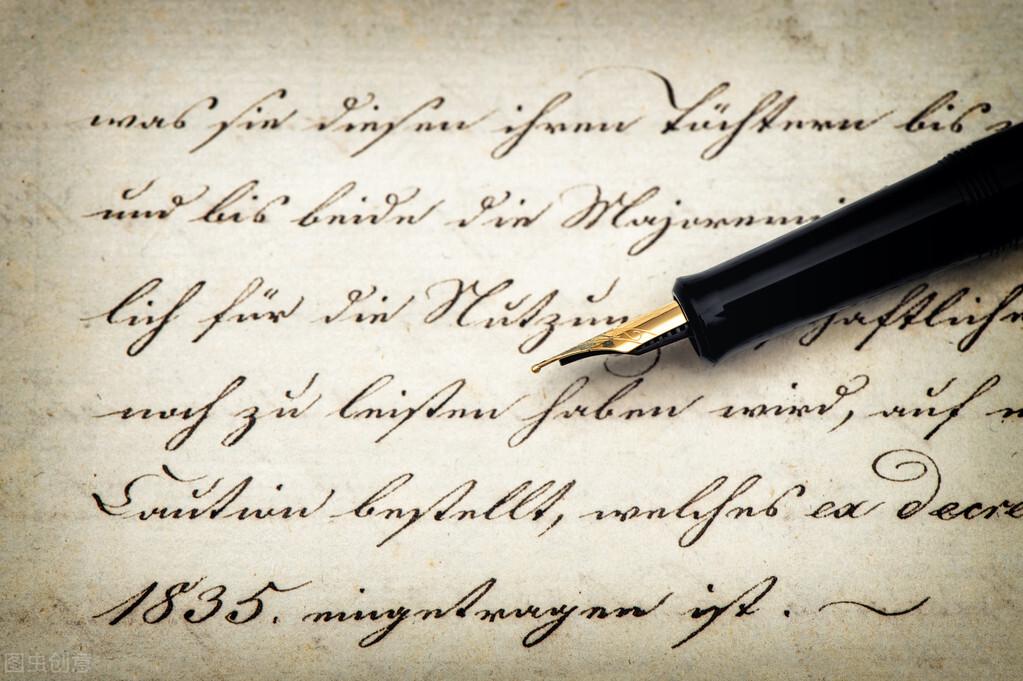 was sie diesen ihren Töchtern bis
und bis beide die Majorenni
lich für die Nutzun haftliche
noch zu leisten haben wird, auf
Caution bestellt, welches ex decre
1835. eingetragen ist.
图虫创意